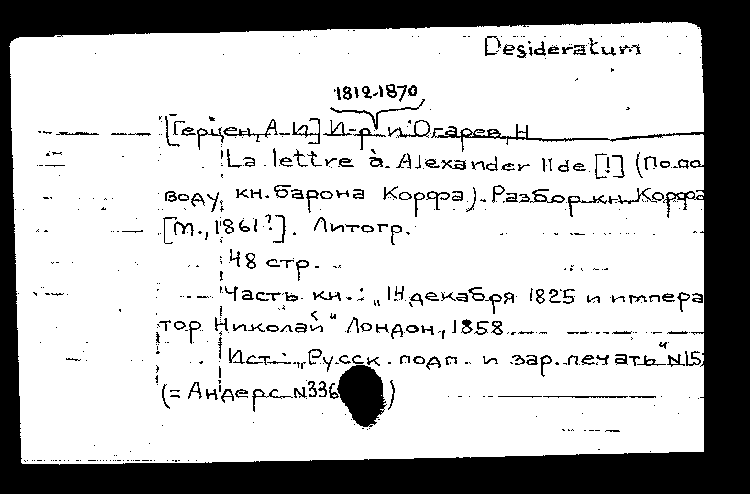 Desideratum
1812-1870
[Герцен, А.И.] И-р и Огарев, Н
La lettre à Alexander II de [!] (По по
воду кн. барона Корфа). Разбор кн. Корфа
[М., 1861?]. Литогр.
48 стр.
Часть кн.: „14 декабря 1825 и импера
тор Николай" Лондон, 1858
Ист.: „Русск. подп. и зар. печать" N 15
(= Андерс N 336 )